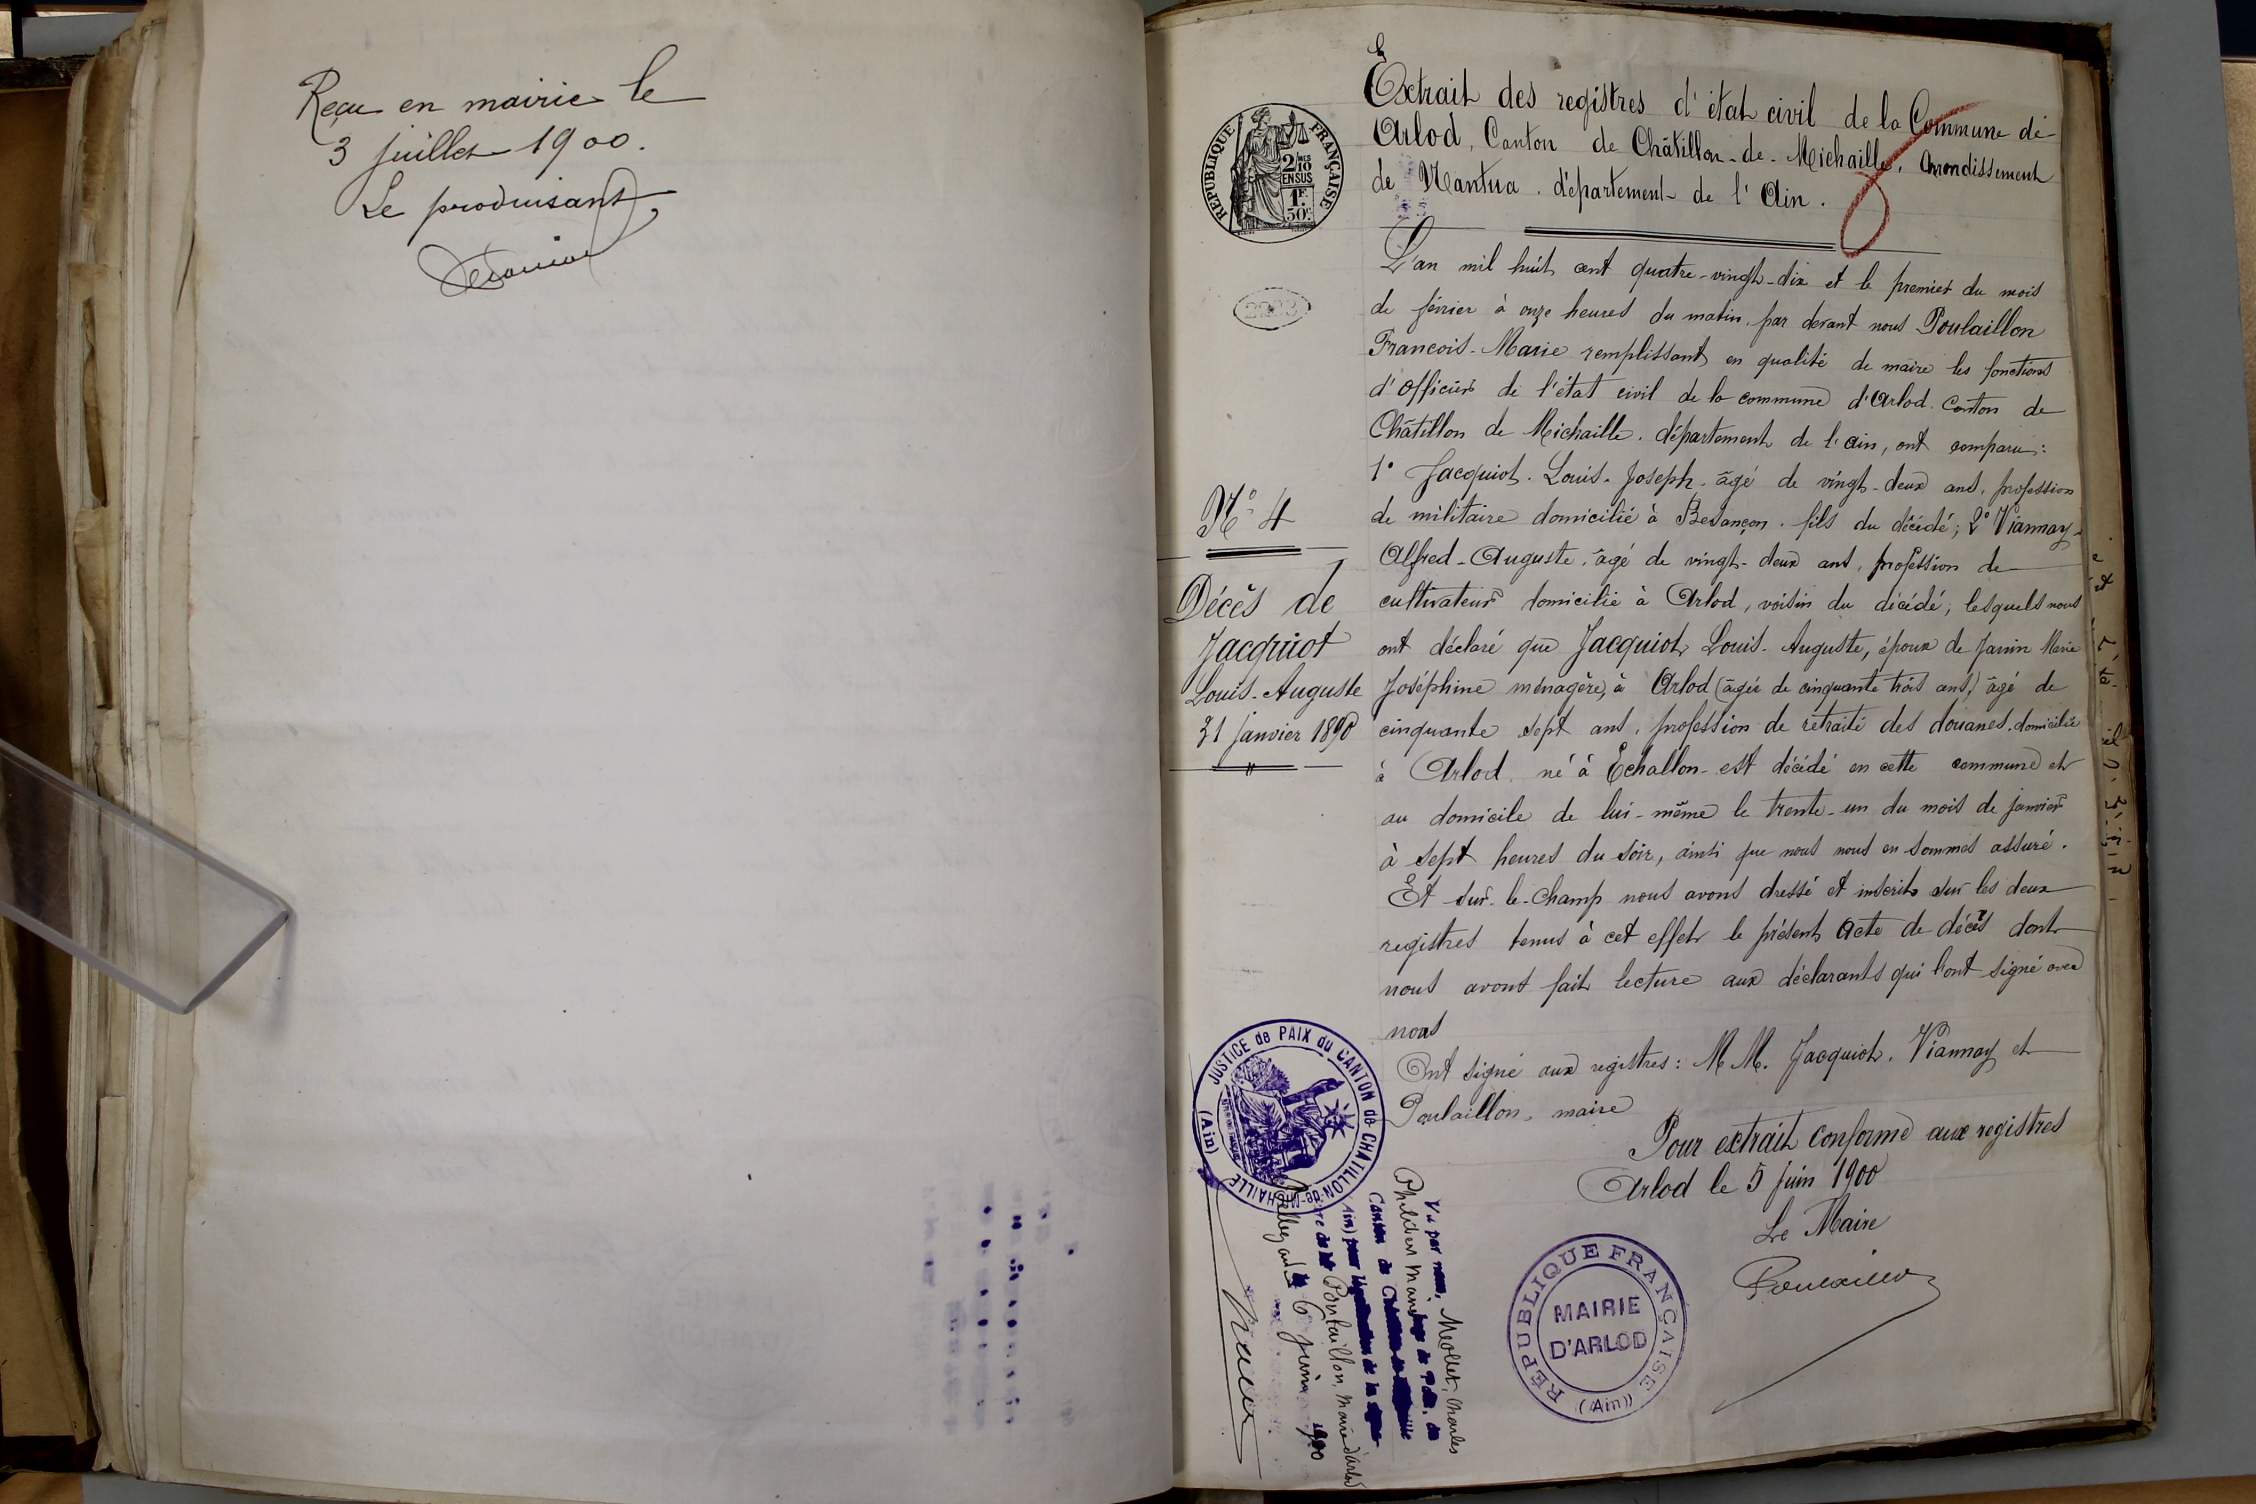 Reçu en mairie le
3 juillet 1900.
Le produisant
Extrait des registres d'état civil de la Commune de
Arlod, Canton de Châtillon-de-Michaille, Arrondissement
de Nantua. département de l'Ain.
RÉPUBLIQUE FRANÇAISE
2/10
EN SUS
1F.
50c
2233
L'an mil huit cent quatre-vingt-dix et le premier du mois
de février à onze heures du matin, par devant nous Poulaillon
François-Marie remplissant en qualité de maire les fonctions
d'officier de l'état civil de la commune d'Arlod. Canton de
Châtillon de Michaille. département de l'ain, ont comparu:
1° Jacquiot. Louis-Joseph. âgé de vingt-deux ans, profession
de militaire domicilié à Besançon. fils du décédé; 2° Viannay-
Alfred-Auguste. âgé de vingt-deux ans, profession de
cultivateur domicilié à Arlod, voisin du décédé, lesquels nous
ont déclaré que Jacquiot Louis-Auguste, époux de Janin Marie
Joséphine ménagère, à Arlod (âgée de cinquante trois ans,) âgé de
cinquante sept ans, profession de retraité des douanes. domicilié
à Arlod, né à Echallon est décédé en cette commune et
au domicile de lui-même le trente-un du mois de janvier
à sept heures du soir, ainsi que nous nous en sommes assuré.
Et sur-le-champ nous avons dressé et inscrit sur les deux
registres tenus à cet effet le présent acte de décès dont
nous avons fait lecture aux déclarants qui l'ont signé avec
nous
Ont signé aux registres: M M. Jacquiot, Viannay et
Poulaillon, maire
N° 4
Décès de
Jacquiot
Louis-Auguste
31 janvier 1890
Pour extrait conforme aux registres
Arlod le 5 juin 1900
Le Maire
Poulaillon
RÉPUBLIQUE FRANÇAISE
MAIRIE
D'ARLOD
(Ain)
JUSTICE de PAIX du CANTON de CHATILLON-de-MICHAILLE
(Ain)
Vu par nous, Mollet, Charles
Juge de Paix, du
Canton de Châtillon de Michaille
(Ain) pour légalisation de la signa-
ture de Mr Poulaillon, Maire d'Arlod
Bellegarde le 6 juin 1900